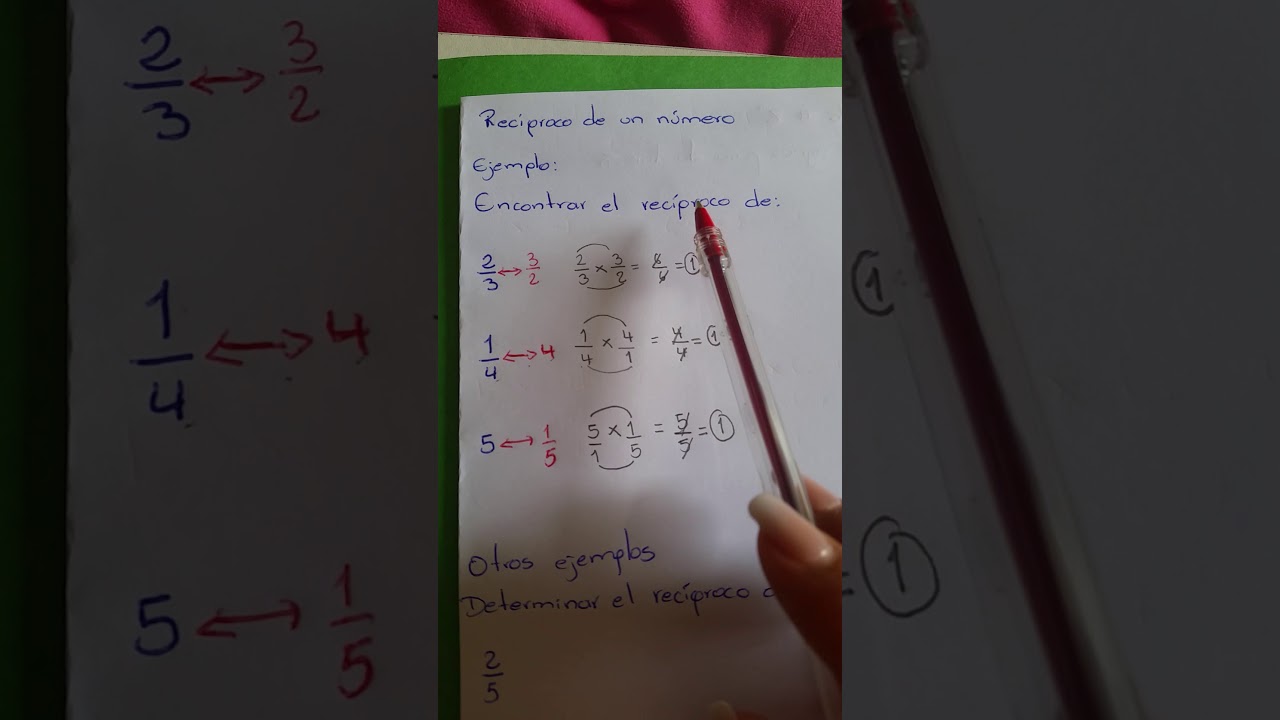 Recíproco de un número
Ejemplo:
Encontrar el recíproco de:
2/3 ↔ 3/2 2/3 x 3/2 = 6/6 = 1
1/4 ↔ 4 1/4 x 4/1 = 4/4 = 1
5 ↔ 1/5 5/1 x 1/5 = 5/5 = 1
Otros ejemplos
Determinar el recíproco
2/5